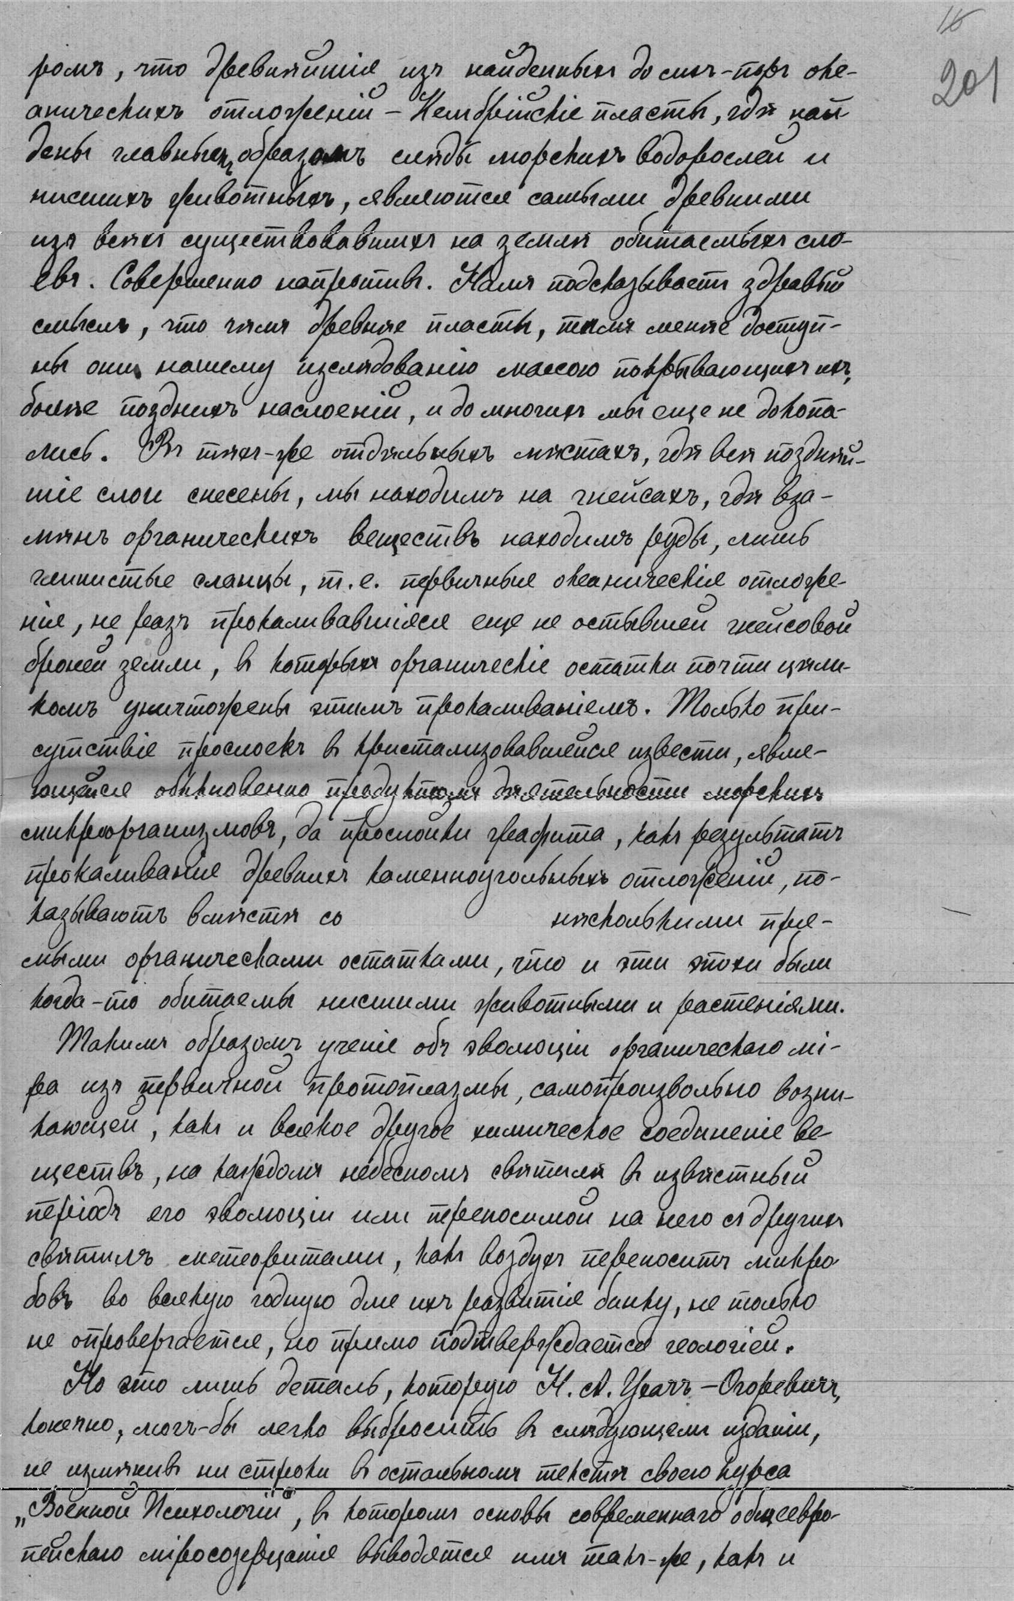 16
201
ромъ, что древнѣйшія изъ найденныхъ до сихъ-поръ оке-
аническихъ отложеній – Кембрійскіе пласты, гдѣ най
дены главнымъ образомъ слѣды морскихъ водорослей и
нисшихъ животныхъ, являются самыми древними
изъ всѣхъ существовавшихъ на землѣ обитаемыхъ сло-
евъ. Совершенно напротивъ. Намъ подсказываетъ здравый
смыслъ, что чѣмъ древнѣе пласты, тѣмъ менѣе доступ-
ны они нашему изслѣдованію массою покрывающихъ ихъ,
болѣе позднихъ наслоеній, и до многихъ мы еще не докопа-
лись. Въ тѣхъ-же отдѣльныхъ мѣстахъ, гдѣ всѣ позднѣй-
шіе слои снесены, мы находимъ на гнейсахъ, гдѣ вза-
мѣнъ органическихъ веществъ находимъ руды, лишь
глинистые сланцы, т. е. первичныя океаническія отложе-
нія, не разъ прокаливавшіяся еще не остывшей гнейсовой
броней земли, въ которыхъ органическіе остатки почти цѣли-
комъ уничтожены этимъ прокаливаніемъ. Только при-
сутствіе прослоекъ въ кристализовавшейся извести, явля-
ющейся обыкновенно продуктомъ дѣятельности морскихъ
микроорганизмовъ, да прослойки графита, какъ результатъ
прокаливанія древнихъ каменноугольныхъ отложеній, по-
казываютъ вмѣстѣ со нѣсколькими пря-
мыми органическами остатками, что и эти эпохи были
когда-то обитаемы нисшими животными и растеніями.
Такимъ образомъ ученіе объ эволюціи органическаго мі-
ра изъ первичной протоплазмы, самопроизвольно возни-
кающей, какъ и всякое другое химическое соединеніе ве
ществъ, на каждомъ небесномъ свѣтилѣ въ извѣстный
періодъ его эволюціи или переносимой на него съ другихъ
свѣтилъ метеоритами, какъ воздухъ переноситъ микро
бовъ во всякую годную для ихъ развитія банку, не только
не опровергается, но прямо подтверждается геологіей.
Но это лишь деталь, которую Н. А. Ухачъ-Огоревичъ,
конечно, могъ-бы легко выбросить въ слѣдующемъ изданіи,
не измѣнивъ ни строки въ остальномъ текстѣ своего курса
„Военной Психологіи“, въ которомъ основы современнаго общеевро-
пейскаго міросозерцанія выводятся имъ такъ-же, какъ и